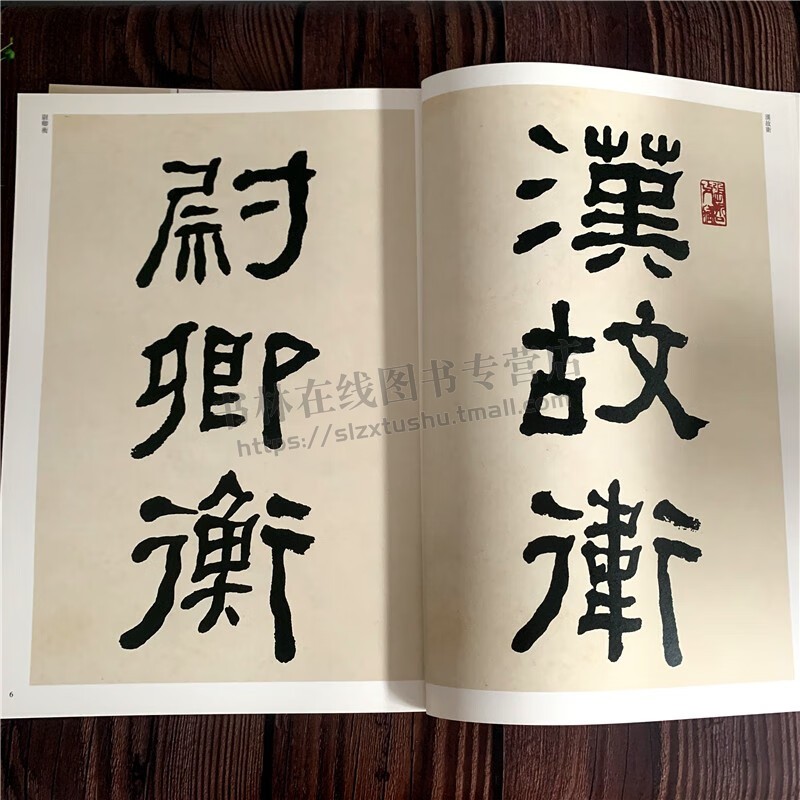 漢故衛
尉卿衡
漢故衛
尉卿衡
6
书林在线图书专营店
https://slzxtushu.tmall.com